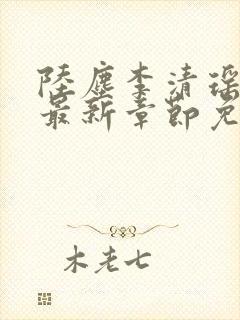 陆尘李清瑶
最新章节免
木老七